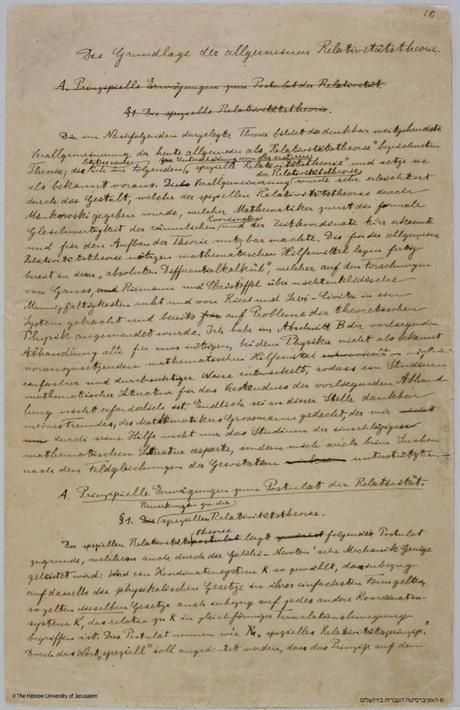 Die Grundlage der allgemeinen Relativitätstheorie.
A. Prinzipielle Erwägungen zum Postulat der Relativität.
§1. Die spezielle Relativitätstheorie.
Die im Nachfolgenden dargelegte Theorie bildet die denkbar weitgehendste
Verallgemeinerung der heute allgemein als "Relativitätstheorie" bezeichneten
Theorie; die letztere nenne ich im folgenden zur Unterscheidung von der ersteren "spezielle Relativitätstheorie" und setze sie
als bekannt voraus. Die Verallgemeinerung der Relativitätstheorie wurde sehr erleichtert
durch die Gestalt, welche der speziellen Relativitätstheorie durch
Minkowski gegeben wurde, welcher Mathematiker zuerst die formale
Gleichwertigkeit der räumlichen Koordinaten und der Zeitkoordinate klar erkannte
und für den Aufbau der Theorie nutzbar machte. Die für die allgemeine
Relativitätstheorie nötigen mathematischen Hilfsmittel lagen fertig
bereit in dem "absoluten Differentialkalkül", welcher auf den Forschungen
von Gauss, Riemann und Christoffel über nichteuklidische
Mannigfaltigkeiten ruht und von Ricci und Levi-Civita in ein
System gebracht und bereits auf Probleme der theoretischen
Physik angewendet wurde. Ich habe im Abschnitt B der vorliegenden
Abhandlung alle für uns nötigen, bei dem Physiker nicht als bekannt
vorauszusetzenden mathematischen Hilfsmittel in möglichst
einfacher und durchsichtiger Weise entwickelt, sodass ein Studium
mathematischer Literatur für das Verständnis der vorliegenden Abhand-
lung nicht erforderlich ist. Endlich sei an dieser Stelle dankbar
meines Freundes, des Mathematikers Grossmann gedacht, der mir
durch seine Hilfe nicht nur das Studium der einschlägigen
mathematischen Literatur ersparte, sondern mich auch beim Suchen
nach den Feldgleichungen der Gravitation unterstützte.
A. Prinzipielle Erwägungen zum Postulat der Relativität.
§1. Bemerkungen zu der speziellen Relativitätstheorie.
Der speziellen Relativitätstheorie liegt folgendes Postulat
zugrunde, welchem auch durch die Galilei-Newton'sche Mechanik Genüge
geleistet wird: Wird ein Koordinatensystem K so gewählt, dass inbezug
auf dasselbe die physikalischen Gesetze in ihrer einfachsten Form gelten,
so gelten dieselben Gesetze auch inbezug auf jedes andere Koordinaten-
system K', das relativ zu K in gleichförmiger Translationsbewegung
begriffen ist. Dies Postulat nennen wir "spezielles Relativitätsprinzip".
Durch das Wort "speziell" soll angedeutet werden, dass das Prinzip auf den
© The Hebrew University of Jerusalem
© האוניברסיטה העברית בירושלים